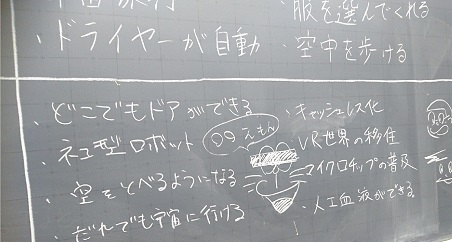 宇宙旅行
・ドライヤーが自動
服を選んでくれる
・空中を歩ける
・どこでもドアができる
・ネコ型ロボット
〇〇えもん
・空をとべるようになる
・だれでも宇宙に行ける
・キャッシュレス化
・VR世界の移住
・マイクロチップの普及
・人工血液ができる